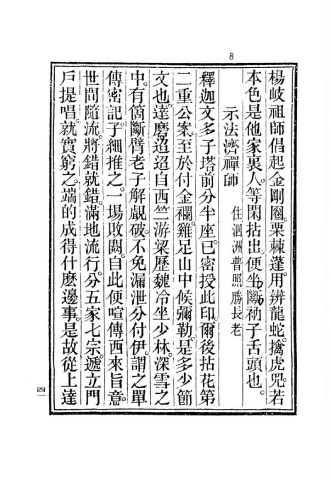 8
楊岐祖師倡起金剛圈。栗棘蓬。用辨龍蛇。擒虎兕。若
本色是他家裏人。等閑拈出。便坐斷衲子舌頭也。
示法濟禪師
住泗洲普照勝長老
釋迦文多子塔前分半座。已密授此印。爾後拈花第
二重公案。至於付金襴。雞足山中候彌勒。是多少節
文也。達磨迢迢自西竺。游梁歷魏。冷坐少林。深雪之
中。有箇斷臂老子覷破。不免漏泄分付伊。謂之單
傳密記。子細推之。一場敗闕。自此便喧傳西來旨意。
世間隨流。將錯就錯。滿地流行。分五家七宗。遞立門
戶提唱。就實窮之。端的成得什麼邊事。是故從上達
四一